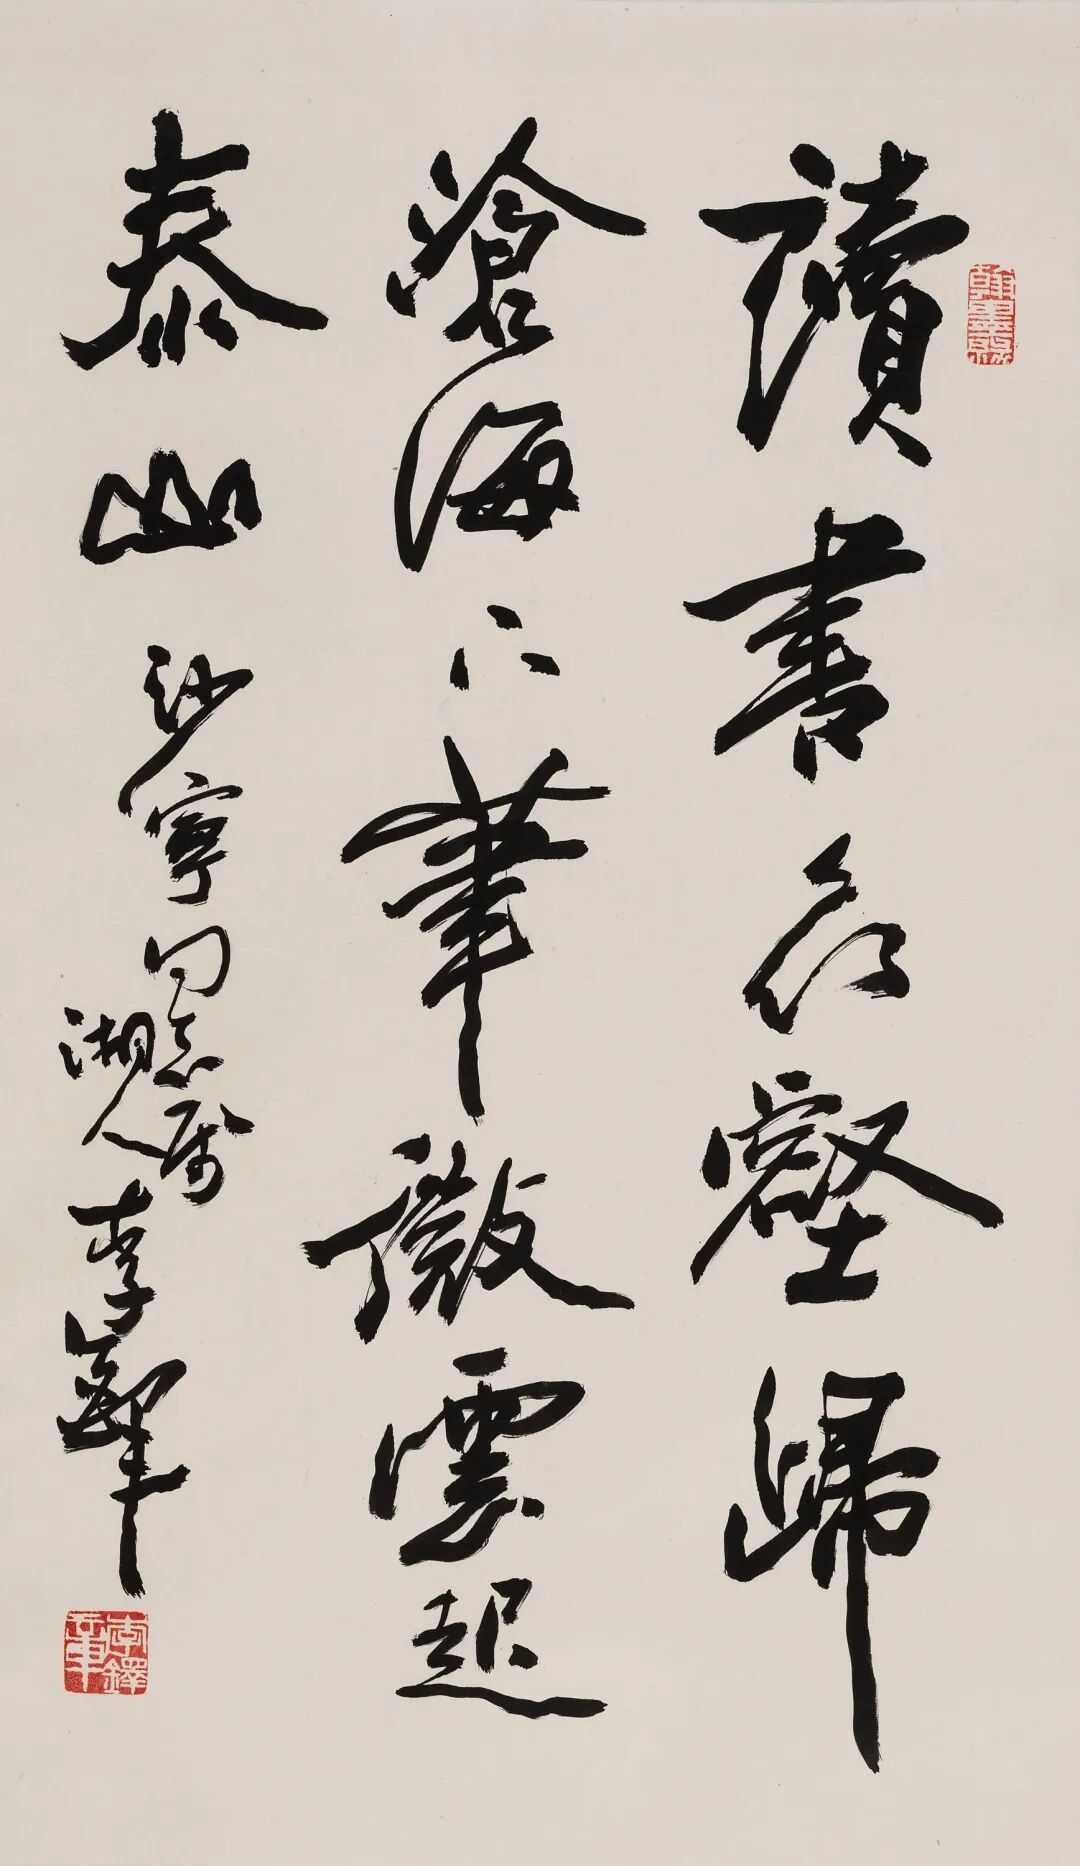 讀書众壑歸
滄海下筆微雲起
泰山
沙寧同志属
湘人李鐸
李鐸